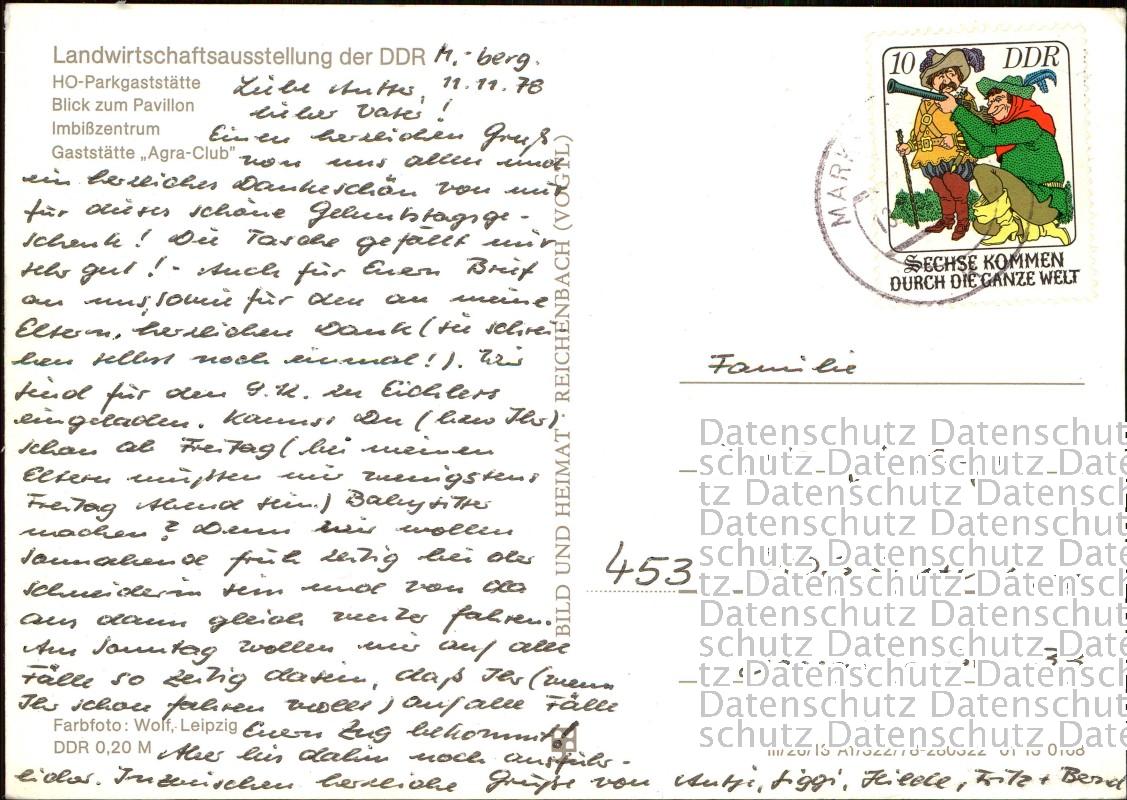 Landwirtschaftsausstellung der DDR
HO-Parkgaststätte
Blick zum Pavillon
Imbißzentrum
Gaststätte „Agra-Club"
M.-berg.
11.11.78
Liebe Mutter,
lieber Vater!
Einen herzlichen Gruß
von uns allen und
ein herzliches Dankeschön von mir
für dieses schöne Geburtstagsge-
schenk! Die Tasche gefällt mir
sehr gut! - Auch für Euern Brief
an uns, sowie für den an meine
Eltern, herzlichen Dank (sie schrei-
ben selbst noch einmal!). Wir
sind für den 9.12. zu
eingeladen. Kannst Du (bzw Ihr)
schon ab Freitag (bei meinen
Eltern müßten wir wenigstens
Freitag Abend sein) Babysitter
machen? Denn wir wollen
Sonnabend früh zeitig bei der
Schneiderin sein und von da
aus dann gleich weiter fahren.
Am Sonntag wollen wir auf alle
Fälle so zeitig dasein, daß Ihr (wenn
Ihr schon fahren wollt) auf alle Fälle
Euern Zug bekommt!
Aber bis dahin noch ausführ-
licher. Inzwischen herzliche Grüße von Antje, Siggi, Hilde, Fritz + Bernd
Farbfoto: Wolf, Leipzig
DDR 0,20 M
BILD UND HEIMAT · REICHENBACH (VOGTL)
10 DDR
SECHSE KOMMEN
DURCH DIE GANZE WELT
MARK
Familie
453
Datenschutz Datenschut
schutz Datenschutz Date
tz Datenschutz Datensc
Datenschutz Datenschut
schutz Datenschutz Date
tz Datenschutz Datensc
Datenschutz Datenschut
schutz Datenschutz Date
tz Datenschutz Datensc
Datenschutz Datenschut
schutz Datenschutz Date